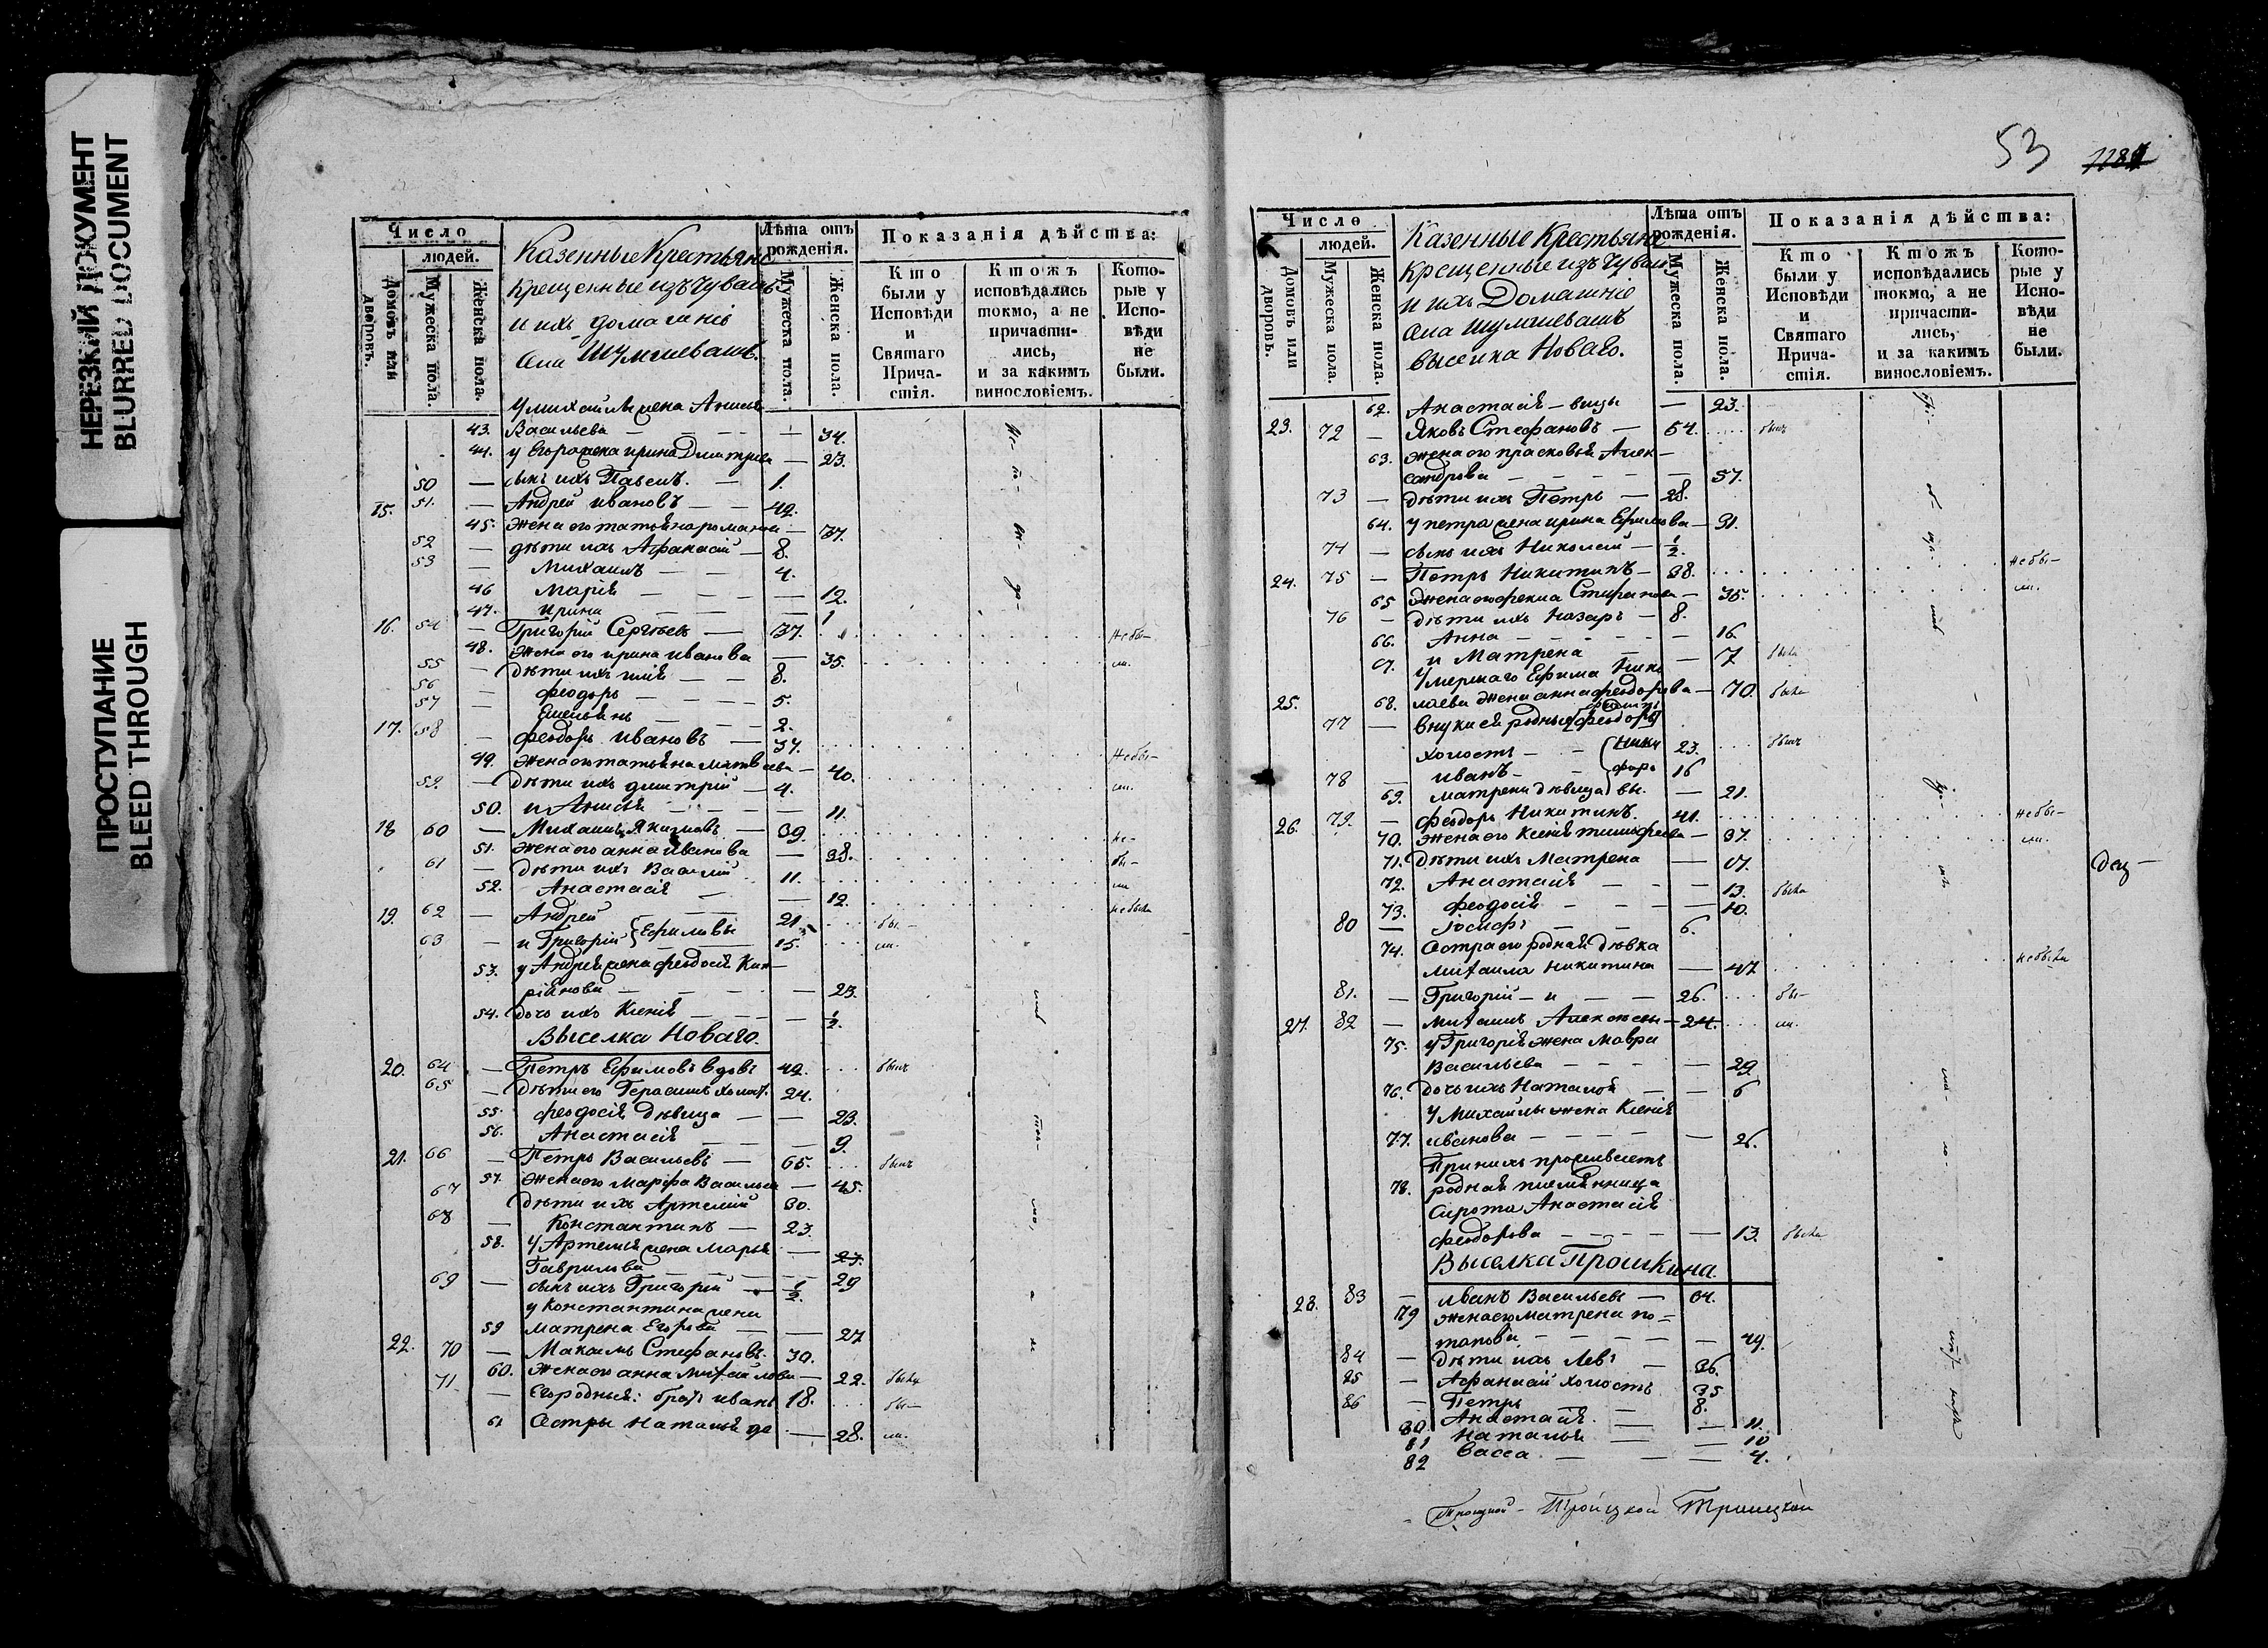 НЕРЕЗКИЙ ДОКУМЕНТ
BLURRED DOCUMENT
ПРОСТУПАНИЕ
BLEED THROUGH
Число
людей.
Домовъ или дворовъ.
Мужеска пола.
Женска пола.
Казенные Крестьяне
Крещенные изъ Чувашъ
и ихъ домашніе
Лѣта отъ рожденія.
Мужеска пола.
Женска пола.
Показанія дѣйства:
Кто были у Исповѣди и Святаго Прича-стія.
Ктожъ исповѣдались токмо, а не причасти-лись, и за какимъ винословіемъ.
Кото-рые у Испо-вѣди не были.
у михайлы жена Анисья
43. Васильева — 34.
44. у Егора жена ирина Дмитріева — 23.
50 — сынъ ихъ Павелъ. — 1.
15. 51. — Андрей ивановъ — 42.
45. жена его татьяна романова — 37.
52 — дѣти ихъ Афанасій — 8.
53 — Михаилъ — 4.
46 Марія — 12.
47. ирина — 1
16. 54 — Григорій Сергѣевъ — 37. небы-
48. жена его ирина иванова — 35. ли.
55 — дѣти ихъ илія — 8.
56 — феодоръ — 5.
57 — Емельянъ — 2.
17. 58 — феодоръ ивановъ — 37. Небы-
49. жена его татьяна матвѣева — 40. ли.
59. — дѣти ихъ дмитрій — 4.
50. и Анисья — 11.
18 60 — Михаилъ Якимовъ — 39. не-
51. жена его анна иванова — 38. бы-
61 — дѣти ихъ Василій 11. ли
52. Анастасія — 12. небыла
19. 62 — Андрей 21 бы-
63 — и Григорій Ефимовы 15. ли.
53. у Андрея жена феодосія Кип-
ріянова — 23.
54. дочь ихъ Ксенія — ½.
Выселка Новаго.
20. 64 — Петръ Ефимовъ вдовъ 42. былъ
65 — дѣти его Герасимъ холост. 24.
55. феодосія дѣвица — 23.
56. Анастасія — 9.
21. 66 — Петръ Васильевъ — 65. былъ
57. жена его Марфа Васильева — 45.
67 дѣти ихъ Артемій 30.
68 — Константинъ — 23.
58. у Артемія жена Марья — 27.
Гаврилова — 29
69 — сынъ ихъ Григорій — ½.
у Константина жена
59 матрена Егорова — 27
22. 70 — Максимъ Стефановъ. 30.
60. жена его анна михайлова — 22. была
71 — Его родный: братъ иванъ 18. бы-
61 Сестры Наталья де — 28. ли.
53
Число
людей.
Домовъ или дворовъ.
Мужеска пола.
Женска пола.
Казенные Крестьяне
крещенные изъ Чуваш
и ихъ Домашніе
Выселка Новаго.
Лѣта отъ рожденія.
Мужеска пола.
Женска пола.
Показанія дѣйства:
Кто были у Исповѣди и Святаго Прича-стія.
Ктожъ исповѣдались токмо, а не причасти-лись, и за какимъ винословіемъ.
Кото-рые у Испо-вѣди не были.
62. Анастасія — вицы — 23.
23. 72 — Яковъ Стефановъ — 54. былъ
63. жена его прасковья Алек-
сандрова — 57.
73 — дѣти ихъ Петръ — 28.
64. у петра жена ирина Ефимова — 31.
74 — сынъ ихъ Николай — ½.
24. 75 — Петръ Никитинъ — 38. небы-
65 жена его фекла Стефанова — 35. ли.
76 — дѣти ихъ Назаръ — 8.
66. Анна — 16
67. и Матрена — 17 была
умершаго Ефима Нико
25. 68. лаева жена анна феодорова — 70. была
77 — внуки ея родные феодоръ
холостъ — 23. былъ
78 — иванъ — 16
69. матрена дѣвица вы. — 21.
26. 79. — феодоръ Никитинъ. 41. небы-
70. жена его Ксенія тимофеева — 37. ли.
71. дѣти ихъ Матрена — 17.
72. Анастасія — 13. была
73. феодосія — 10.
80 — Іосифъ — 6.
74. Сестра его родная дѣвка
михаила Никитина — 47 небыла
81. — Григорій — и — 26. бы-
27. 82 — михаилъ Алексѣевы — 24. ли.
75. у Григорія жена Мавра
Васильева — 29
76. дочь ихъ Наталья — 6
у Михайлы жена Ксенія
77. иванова — 26.
При нихъ проживаетъ
78. родная племянница
Сирота Анастасія
феодорова — 13. была
Выселка Прошкина.
28. 83 — иванъ Васильевъ — 64.
79 жена его матрена по-
тапова — 49.
84 — дѣти ихъ Левъ — 36.
85 — Афанасій холостъ 35
86 — Петръ 8.
80. Анастасія. — 11.
81 Наталья — 10
82 Васса — 4.
Троицкой - Троицкой Троицкой